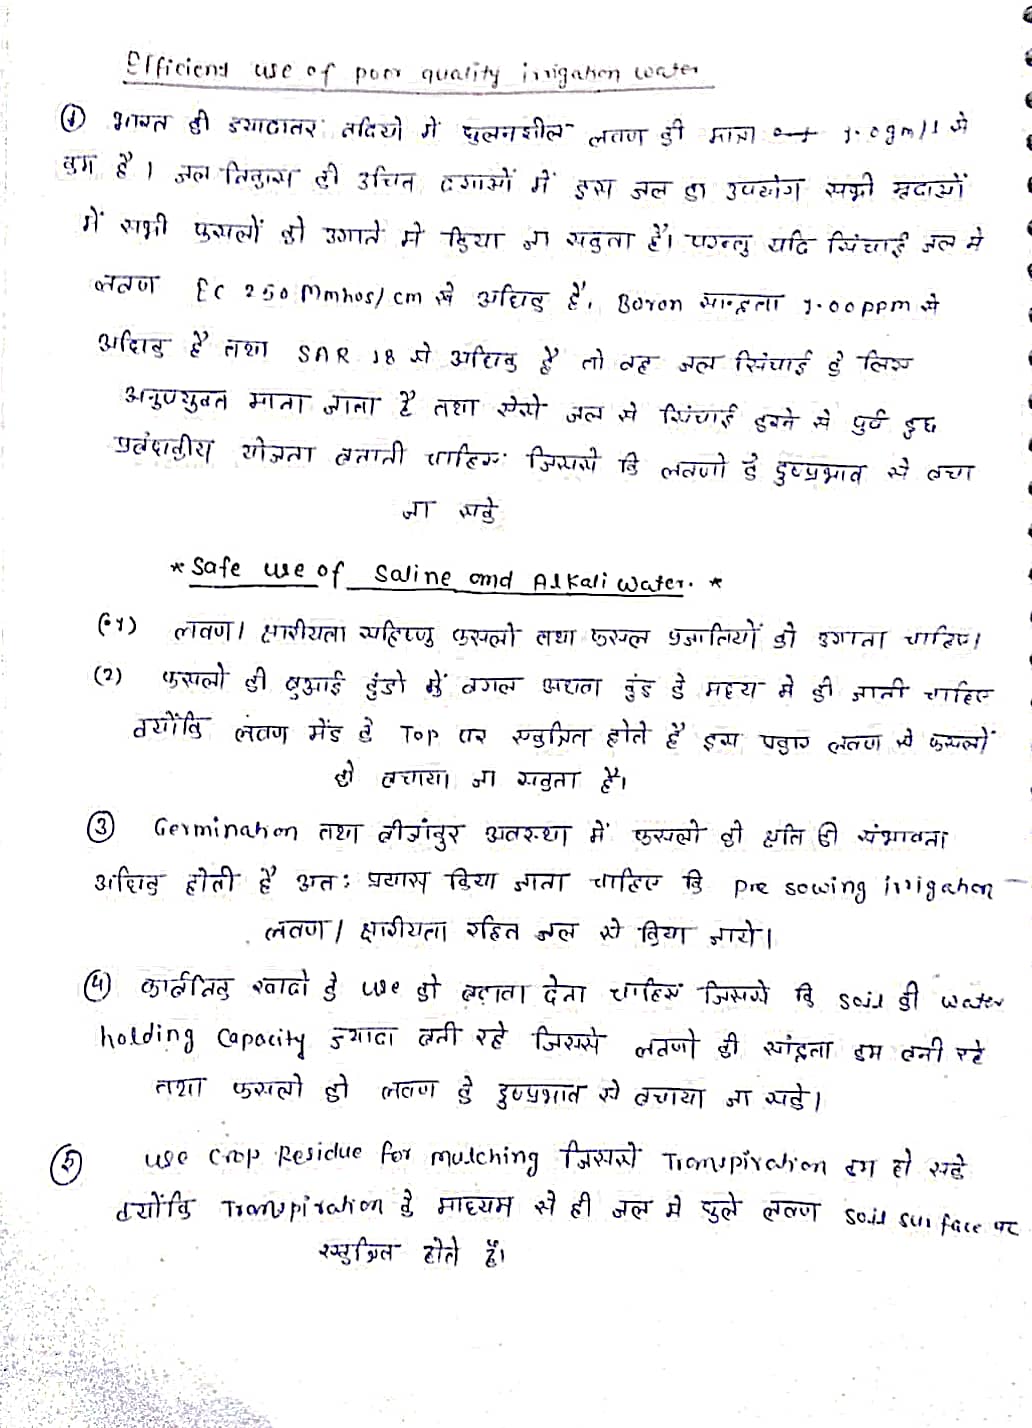 Efficient use of poor quality irrigation water
① भारत की ज्यादातर नदियों में घुलनशील लवण की मात्रा 1.0gm/l से
कम है। जल निकास की उचित दशाओं में इस जल का उपयोग सभी मृदाओं
में सभी फसलों को उगाने में किया जा सकता है। परन्तु यदि सिंचाई जल में
लवण EC 250 Mmhos/cm से अधिक है, Boron सान्द्रता 1.00 ppm से
अधिक है तथा SAR 18 से अधिक है तो वह जल सिंचाई के लिए
अनुपयुक्त माना जाता है तथा ऐसे जल से सिंचाई करने से पूर्व कुछ
प्रबंधकीय योजना बनानी चाहिए जिससे कि लवणो के दुष्प्रभाव से बचा
जा सके
* Safe use of Saline and Alkali water. *
(1) लवण। क्षारीयता सहिष्णु फसलो तथा फसल प्रजातियों को उगाना चाहिए।
(2) फसलो की बुआई कुंडो के बगल अथवा कुंड के मध्य मे की जानी चाहिए
क्योंकि लवण मेंड के Top पर एकत्रित होते है इस प्रकार लवण से फसलों
को बचाया जा सकता है।
③ Germination तथा बीजांकुर अवस्था में फसलो को क्षति की संभावना
अधिक होती है अतः प्रयास किया जाना चाहिए कि pre sowing irrigation
लवण / क्षारीयता रहित जल से किया जाये।
④ कार्बनिक खादो के use को बढ़ावा देना चाहिए जिससे कि soil की water
holding Capacity ज्यादा बनी रहे जिससे लवणो की सांद्रता कम बनी रहे
तथा फसलो को लवण के दुष्प्रभाव से बचाया जा सके।
⑤ use crop Residue for mulching जिससे Transpiration कम हो सके
क्योंकि Transpiration के माध्यम से ही जल मे घुले लवण soil surface पर
एकत्रित होते हैं।